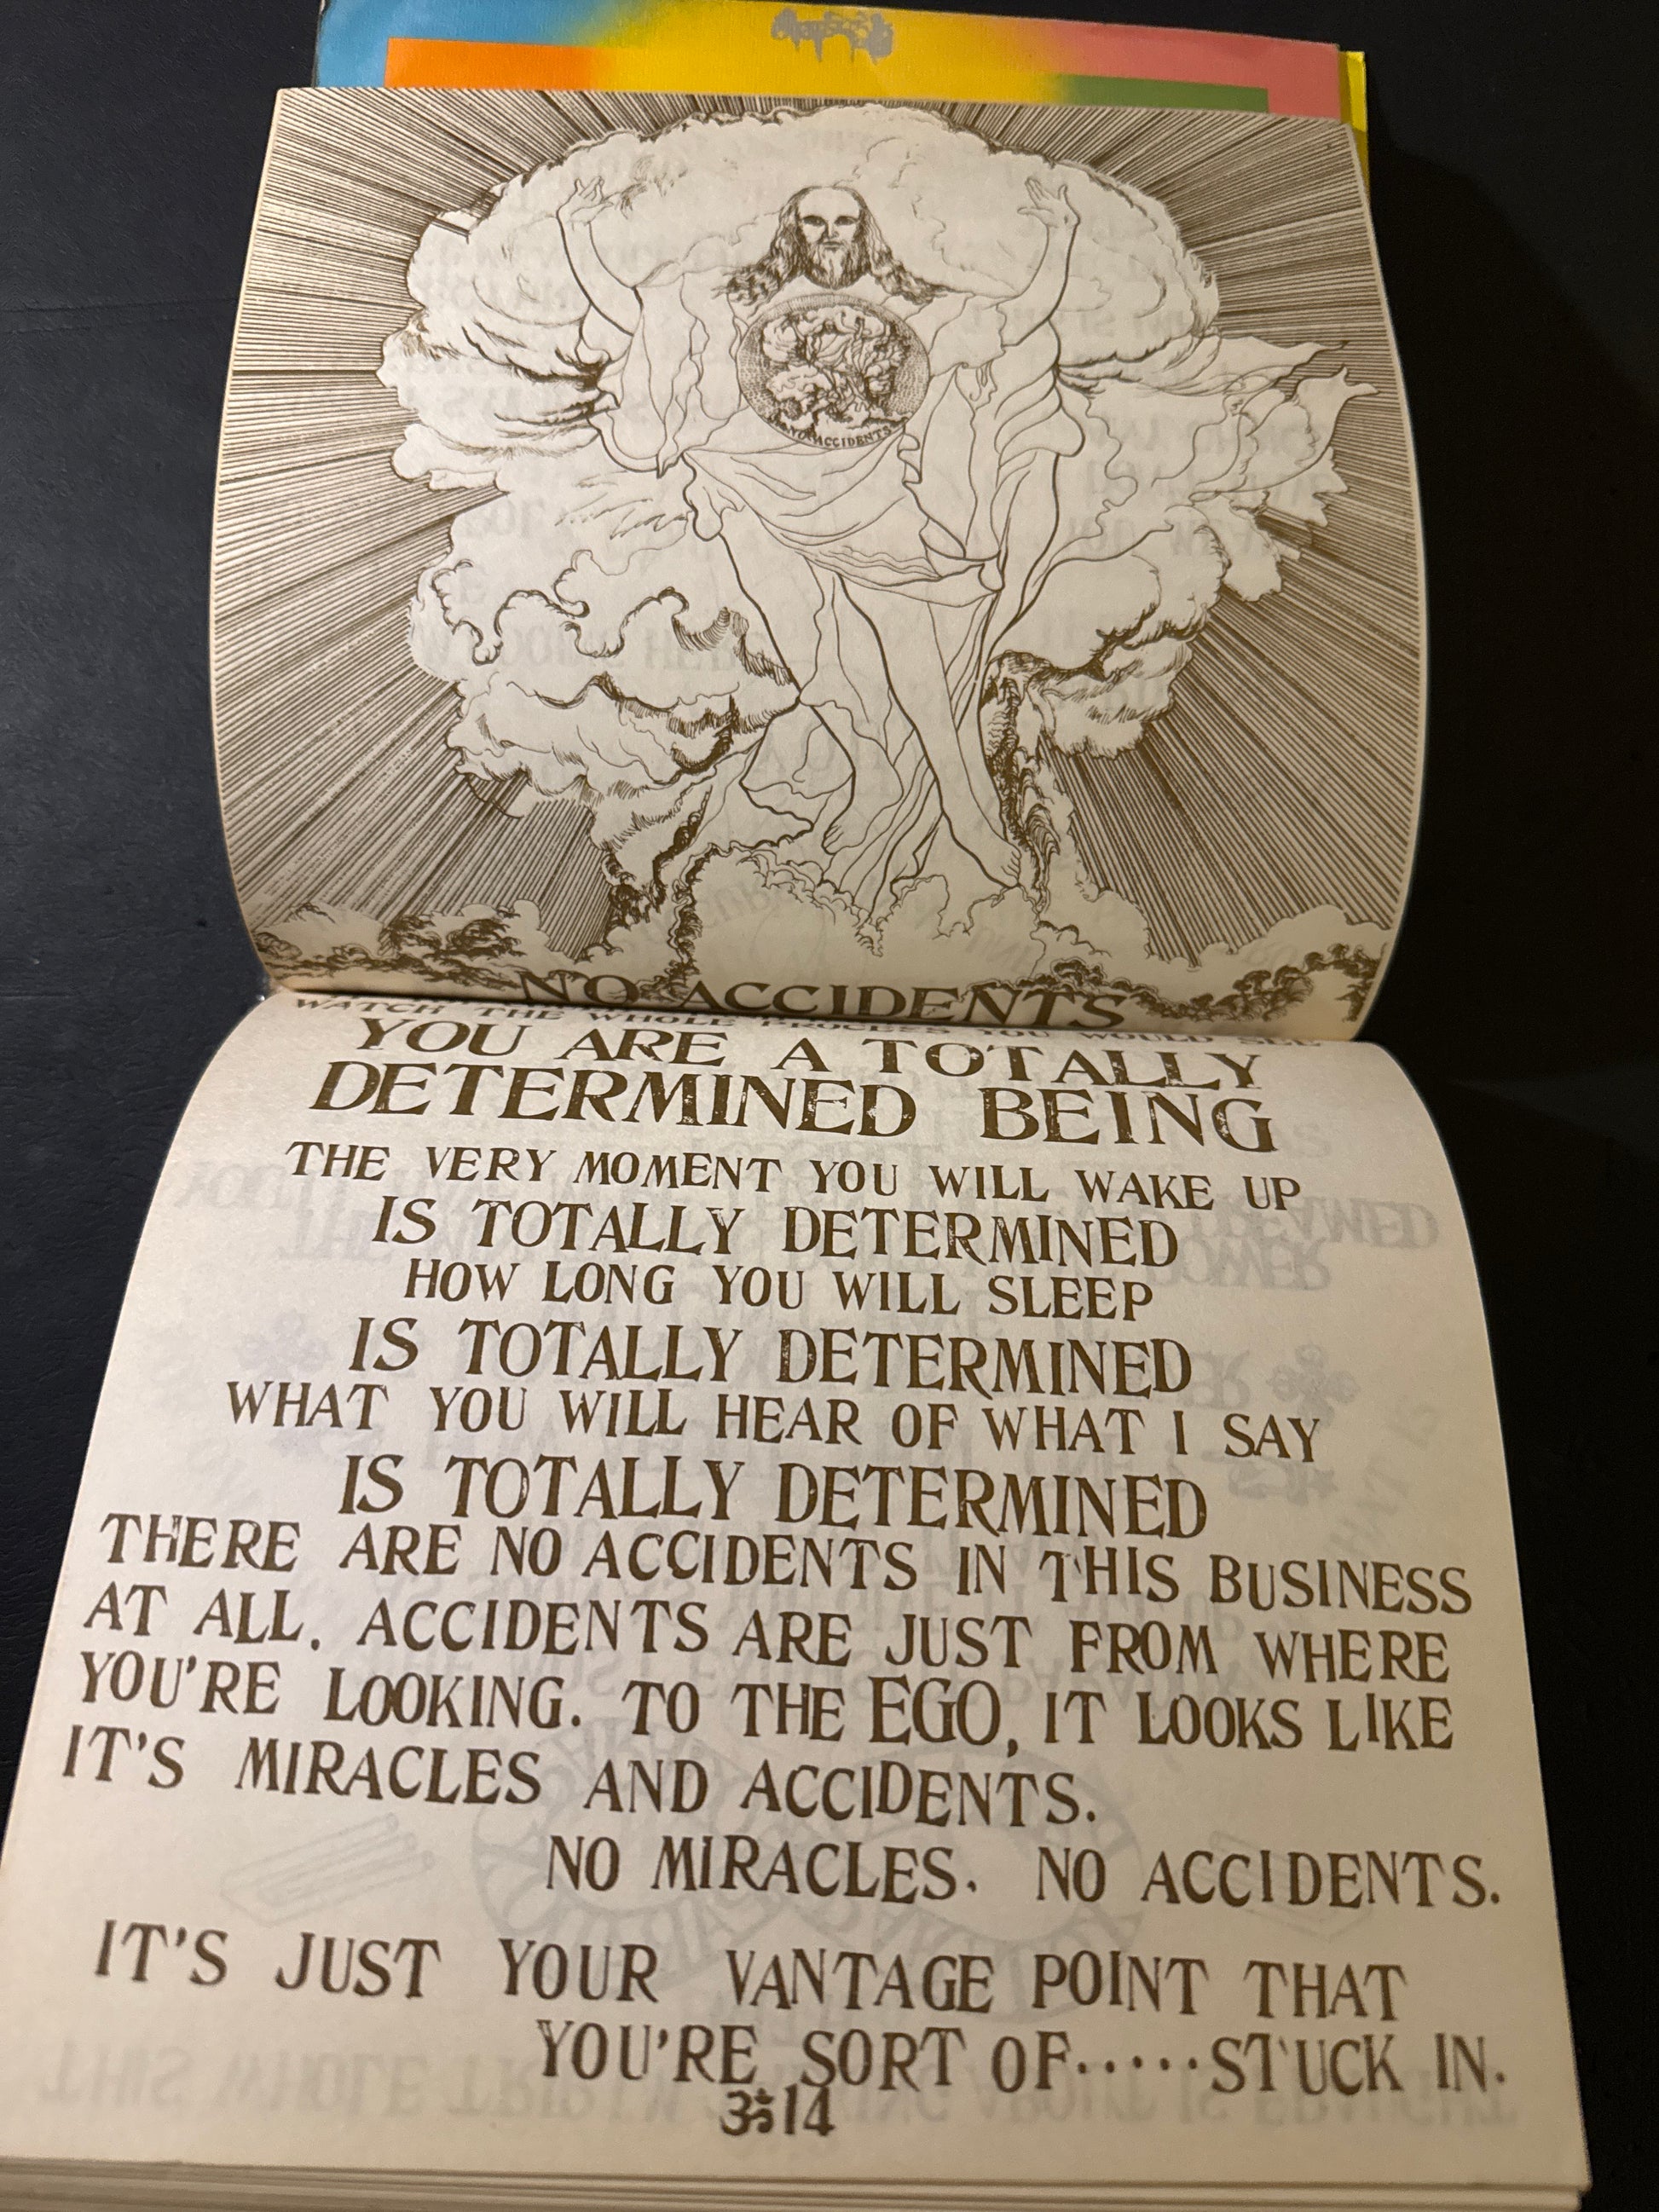 NO ACCIDENTS
NO ACCIDENTS
WATCH THE WHOLE PROCESS YOU WOULD SEE
YOU ARE A TOTALLY
DETERMINED BEING
THE VERY MOMENT YOU WILL WAKE UP
IS TOTALLY DETERMINED
HOW LONG YOU WILL SLEEP
IS TOTALLY DETERMINED
WHAT YOU WILL HEAR OF WHAT I SAY
IS TOTALLY DETERMINED
THERE ARE NO ACCIDENTS IN THIS BUSINESS
AT ALL. ACCIDENTS ARE JUST FROM WHERE
YOU'RE LOOKING. TO THE EGO, IT LOOKS LIKE
IT'S MIRACLES AND ACCIDENTS.
NO MIRACLES. NO ACCIDENTS.
IT'S JUST YOUR VANTAGE POINT THAT
YOU'RE SORT OF.....STUCK IN.
14